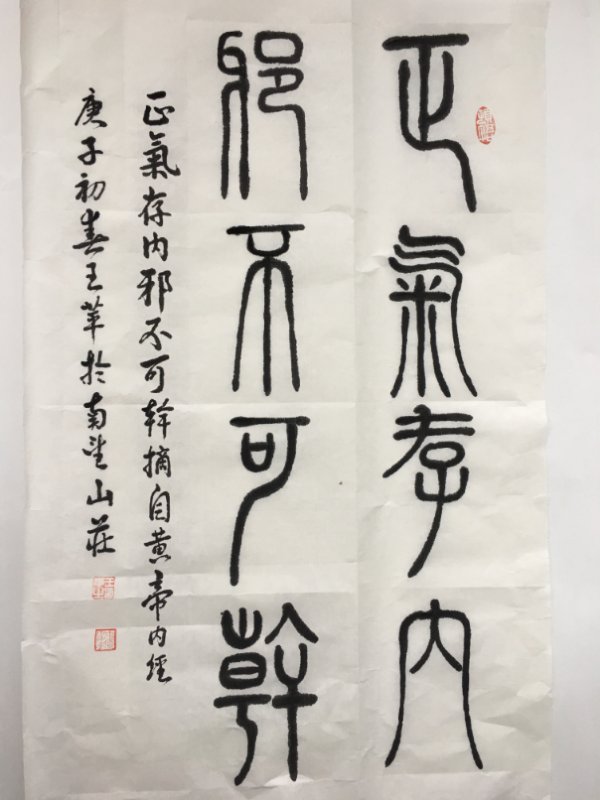 正氣存内
邪不可幹
正氣存内邪不可幹摘自黄帝内經
庚子初春王苹於南望山莊